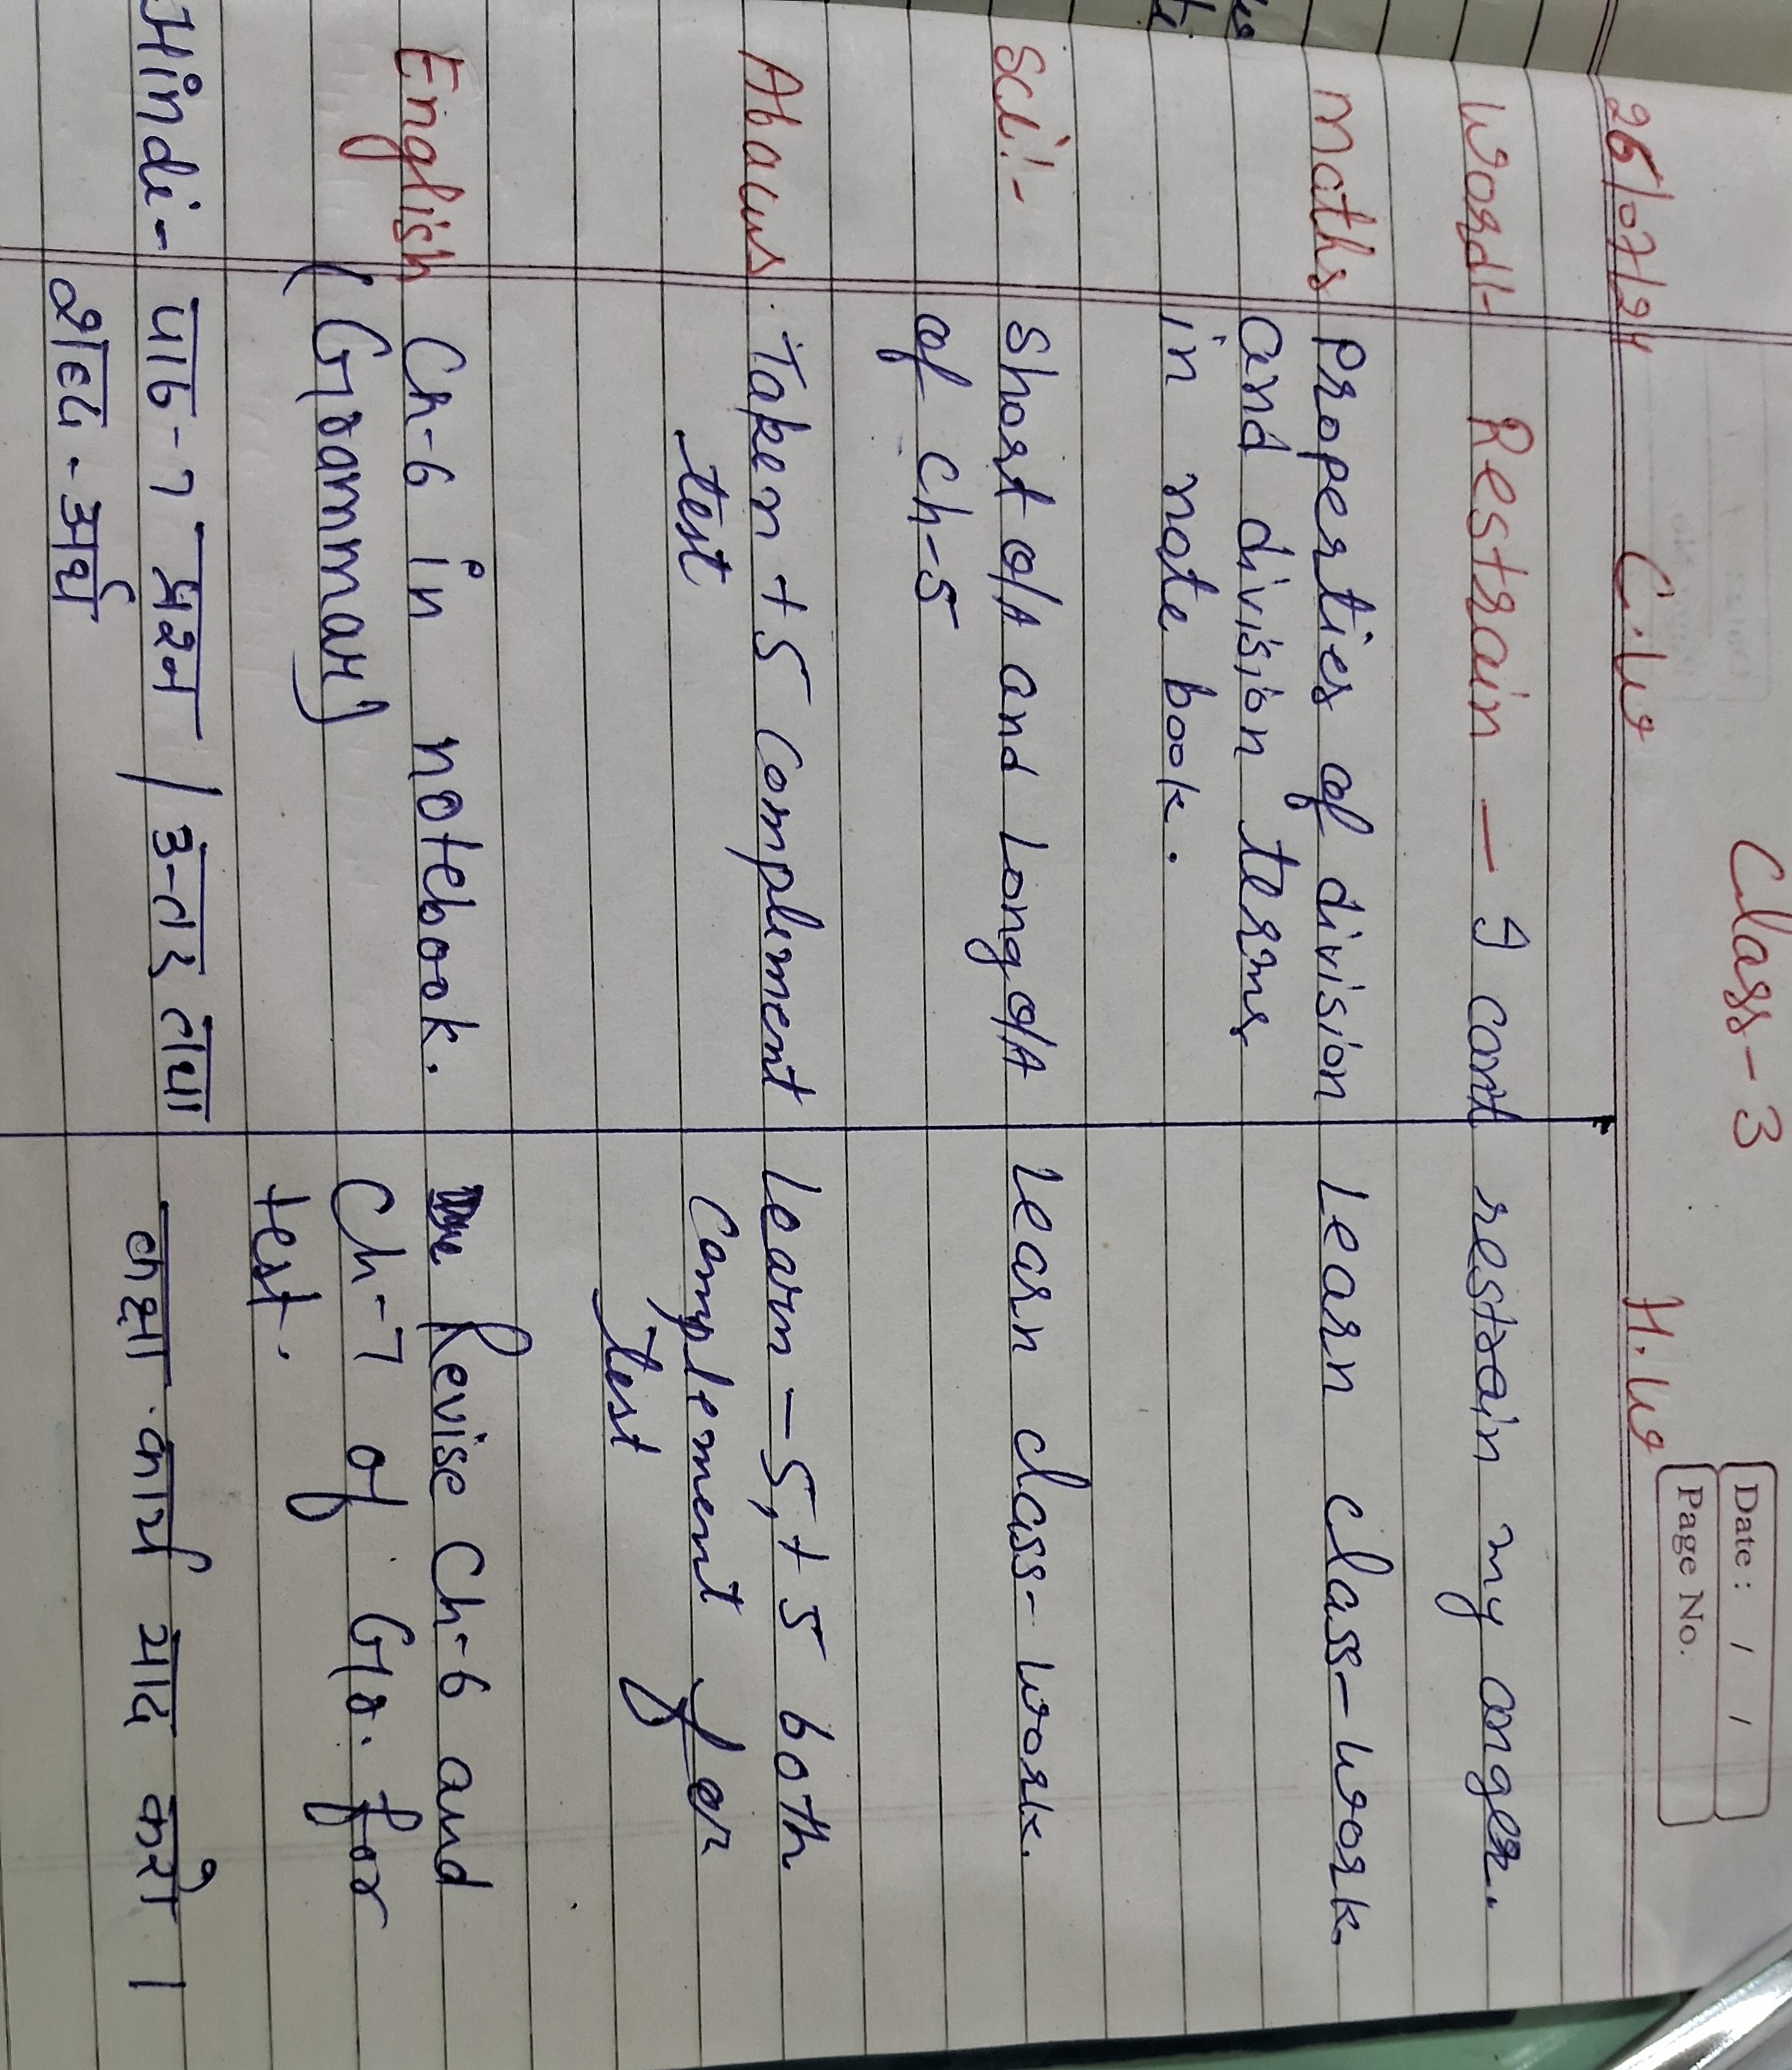 Class-3
Date: / /
Page No.
26/07/24 C.W H.W
Word:- Restrain — I cant restrain my anger.
Maths Properties of division Learn class-work.
and division terms
in note book.
Sci:- Short Q/A and Long Q/A Learn class-work.
of Ch-5
Abacus Taken +5 Compliment Learn -5, +5 both
test Complement for
test
English Ch-6 in notebook. Revise Ch-6 and
(Grammar) Ch-7 of Gr. for
test.
Hindi:- पाठ-7 प्रश्न / उत्तर तथा कक्षा कार्य याद करो।
शब्द-अर्थ